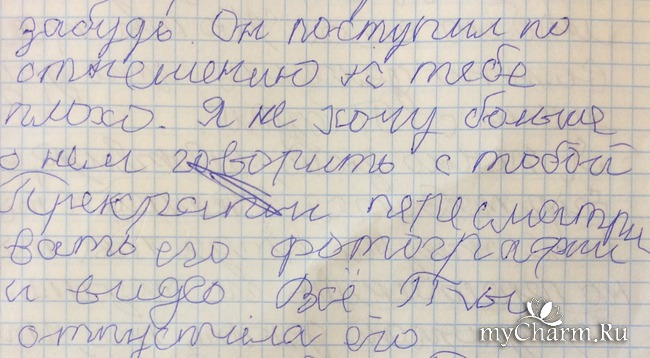 забудь. Он поступил по
отношению к тебе
плохо. Я не хочу больше
о нем говорить с тобой
Прекрати пересматри
вать его фотографии
и видео Всё Ты
отпустила его
myCharm.Ru